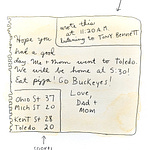 wrote this
at 11:20 A.M.
listening to Tony Bennett
Hope you
had a good
day. Me + Mom went to Toledo.
We will be home at 5:30!
Eat pizza! Go Buckeyes!
Love,
Dad +
Mom
Ohio St 37
Mich ST 20
Kent St 28
Toledo 20
scores